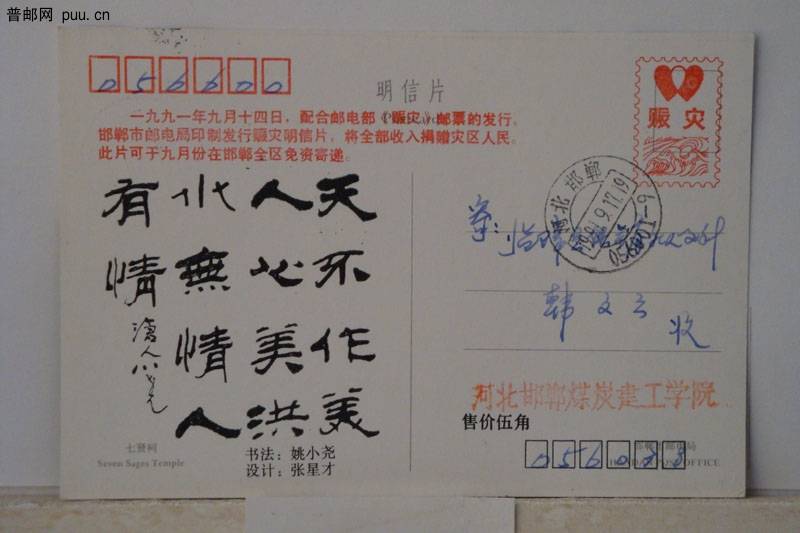 普邮网 puu.cn
056600
明信片
一九九一年九月十四日，配合邮电部《赈灾》邮票的发行。
邯郸市邮电局印制发行赈灾明信片，将全部收入捐赠灾区人民。
此片可于九月份在邯郸全区免资寄递。
赈灾
河北 邯郸
1991.9.17.19
天不作美
人心美洪
水無情人
有情
韩文云 收
河北邯郸煤炭建工学院
售价伍角
七贤祠
Seven Sages Temple
书法：姚小尧
设计：张星才